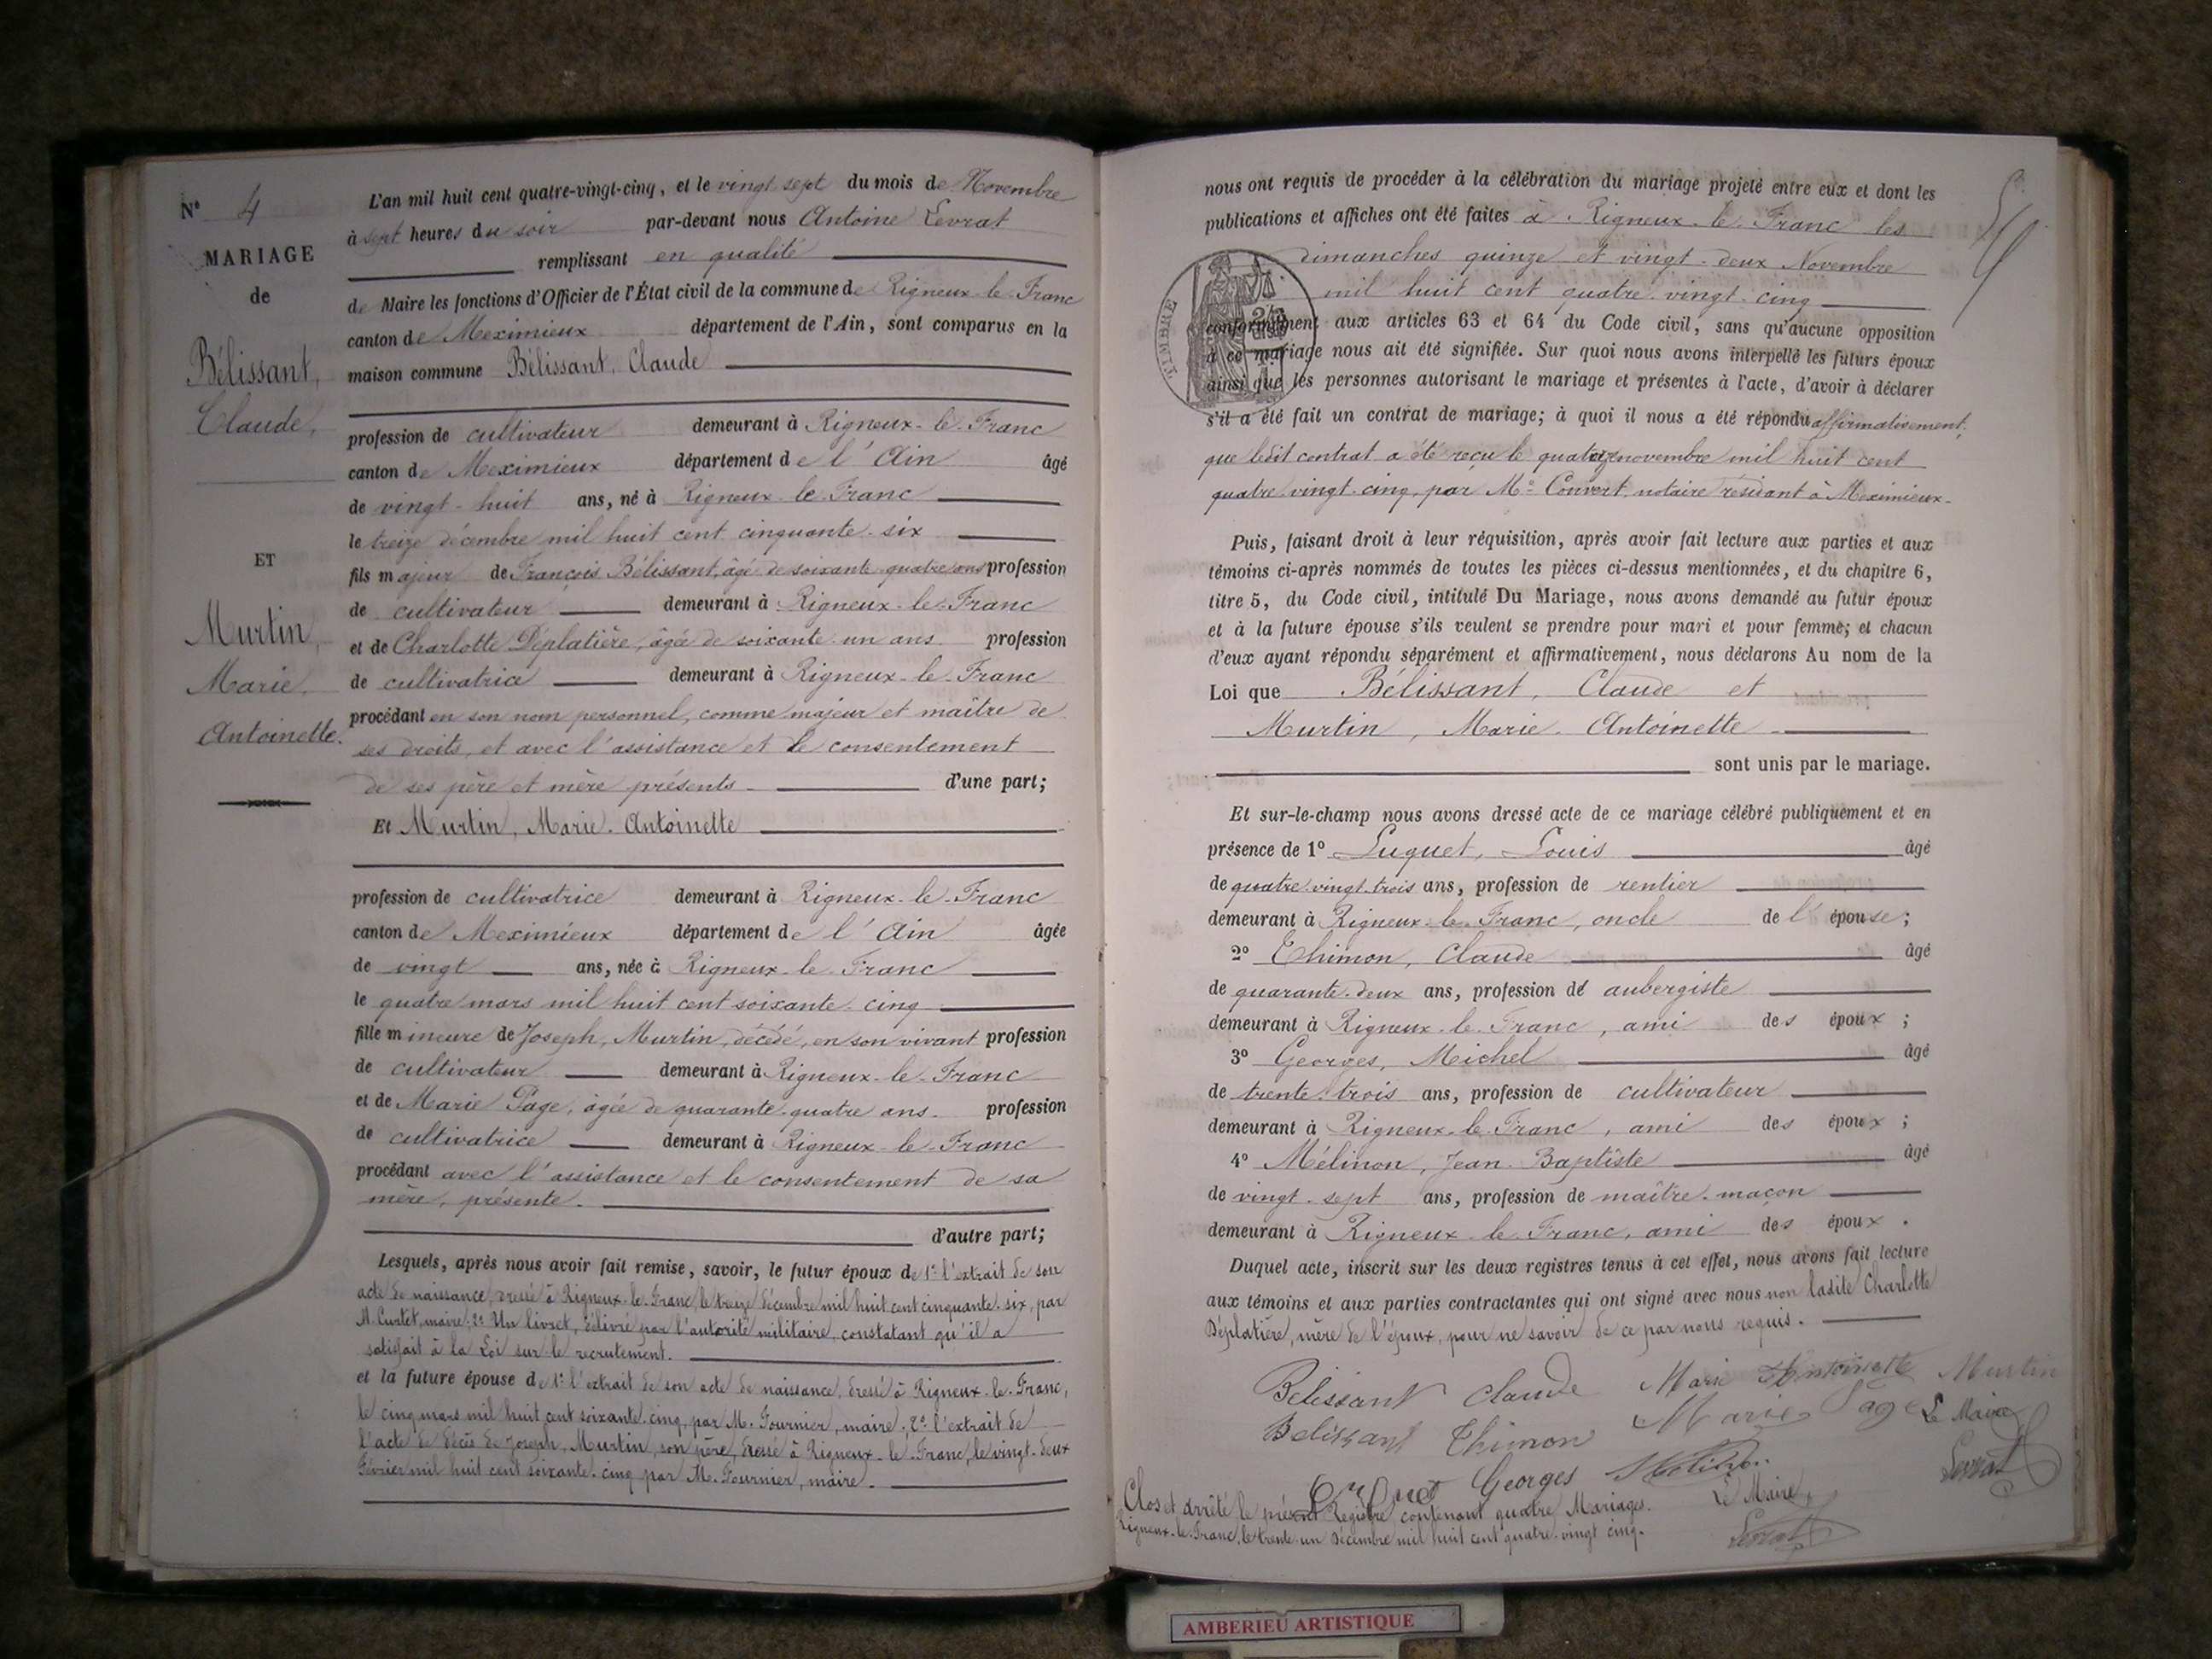 N° 4
MARIAGE
de
Bélissant,
Claude,
ET
Murtin,
Marie,
Antoinette.
L'an mil huit cent quatre-vingt-cinq, et le vingt sept du mois de Novembre
à sept heures du soir par-devant nous Antoine Levrat
remplissant en qualité
de Maire les fonctions d'Officier de l'État civil de la commune de Rigneux-le-Franc
canton de Meximieux département de l'Ain, sont comparus en la
maison commune Bélissant, Claude
profession de cultivateur demeurant à Rigneux-le-Franc
canton de Meximieux département de l'Ain âgé
de vingt-huit ans, né à Rigneux-le-Franc
le treize décembre mil huit cent cinquante-six
fils majeur de François Bélissant, âgé de soixante-quatre ans profession
de cultivateur demeurant à Rigneux-le-Franc
et de Charlotte Déplatière, âgée de soixante-un ans profession
de cultivatrice demeurant à Rigneux-le-Franc
procédant en son nom personnel, comme majeur et maître de
ses droits, et avec l'assistance et le consentement
de ses père et mère présents d'une part;
Et Murtin, Marie-Antoinette
profession de cultivatrice demeurant à Rigneux-le-Franc
canton de Meximieux département de l'Ain âgée
de vingt ans, née à Rigneux-le-Franc
le quatre mars mil huit cent soixante-cinq
fille mineure de Joseph, Murtin, décédé, en son vivant profession
de cultivateur demeurant à Rigneux-le-Franc
et de Marie Page, âgée de quarante-quatre ans profession
de cultivatrice demeurant à Rigneux-le-Franc
procédant avec l'assistance et le consentement de sa
mère, présente.
d'autre part;
Lesquels, après nous avoir fait remise, savoir, le futur époux de 1° l'extrait de son
acte de naissance, dressé à Rigneux-le-Franc, le treize décembre mil huit cent cinquante-six, par
M. Curtet, maire; 2° Un livret, délivré par l'autorité militaire, constatant qu'il a
satisfait à la Loi sur le recrutement.
et la future épouse de 1° l'extrait de son acte de naissance, dressé à Rigneux-le-Franc,
le cinq mars mil huit cent soixante-cinq, par M. Fournier, maire; 2° l'extrait de
l'acte de décès de Joseph, Murtin, son père, dressé à Rigneux-le-Franc, le vingt-deux
Février mil huit cent soixante-cinq par M. Fournier, maire.
nous ont requis de procéder à la célébration du mariage projeté entre eux et dont les
publications et affiches ont été faites à Rigneux-le-Franc les
dimanches quinze et vingt-deux Novembre
mil huit cent quatre-vingt-cinq
TIMBRE
conformément aux articles 63 et 64 du Code civil, sans qu'aucune opposition
à ce mariage nous ait été signifiée. Sur quoi nous avons interpellé les futurs époux
ainsi que les personnes autorisant le mariage et présentes à l'acte, d'avoir à déclarer
s'il a été fait un contrat de mariage; à quoi il nous a été répondu affirmativement,
que ledit contrat a été reçu le quatorze novembre mil huit cent
quatre-vingt-cinq, par Me Convert, notaire résidant à Meximieux-
Puis, faisant droit à leur réquisition, après avoir fait lecture aux parties et aux
témoins ci-après nommés de toutes les pièces ci-dessus mentionnées, et du chapitre 6,
titre 5, du Code civil, intitulé Du Mariage, nous avons demandé au futur époux
et à la future épouse s'ils veulent se prendre pour mari et pour femme; et chacun
d'eux ayant répondu séparément et affirmativement, nous déclarons Au nom de la
Loi que Bélissant, Claude et
Murtin, Marie-Antoinette
sont unis par le mariage.
Et sur-le-champ nous avons dressé acte de ce mariage célébré publiquement et en
présence de 1° Luquet, Louis âgé
de quatre-vingt-trois ans, profession de rentier
demeurant à Rigneux-le-Franc, oncle de l'épouse;
2° Thimon, Claude âgé
de quarante-deux ans, profession de aubergiste
demeurant à Rigneux-le-Franc, ami des époux;
3° Georges, Michel âgé
de trente-trois ans, profession de cultivateur
demeurant à Rigneux-le-Franc, ami des époux;
4° Mélinon, Jean-Baptiste âgé
de vingt-sept ans, profession de maître-maçon
demeurant à Rigneux-le-Franc, ami des époux.
Duquel acte, inscrit sur les deux registres tenus à cet effet, nous avons fait lecture
aux témoins et aux parties contractantes qui ont signé avec nous non ladite Charlotte
Déplatière, mère de l'époux, pour ne savoir de ce par nous requis.
Belissant Claude Marie Antoinette Murtin
Belissant Thimon Marie Page Le Maire
Luquet Georges Levrat
Clos et arrêté le présent Registre contenant quatre Mariages. Le Maire,
Rigneux-le-Franc, le trente-un Décembre mil huit cent quatre-vingt cinq. Levrat
AMBERIEU ARTISTIQUE